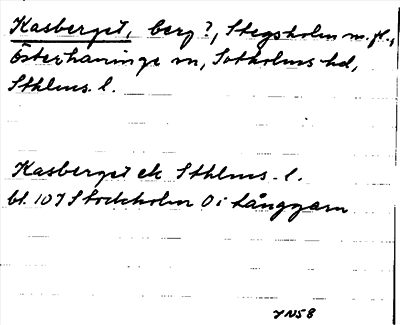 Kasberget, berg?, Stegsholm m.fl.,
Österhaninge sn, Sotholms hd,
Sthlms l.
Kasberget ek Sthlms l.
bl. 107 Stockholm O i Långgarn
JN58